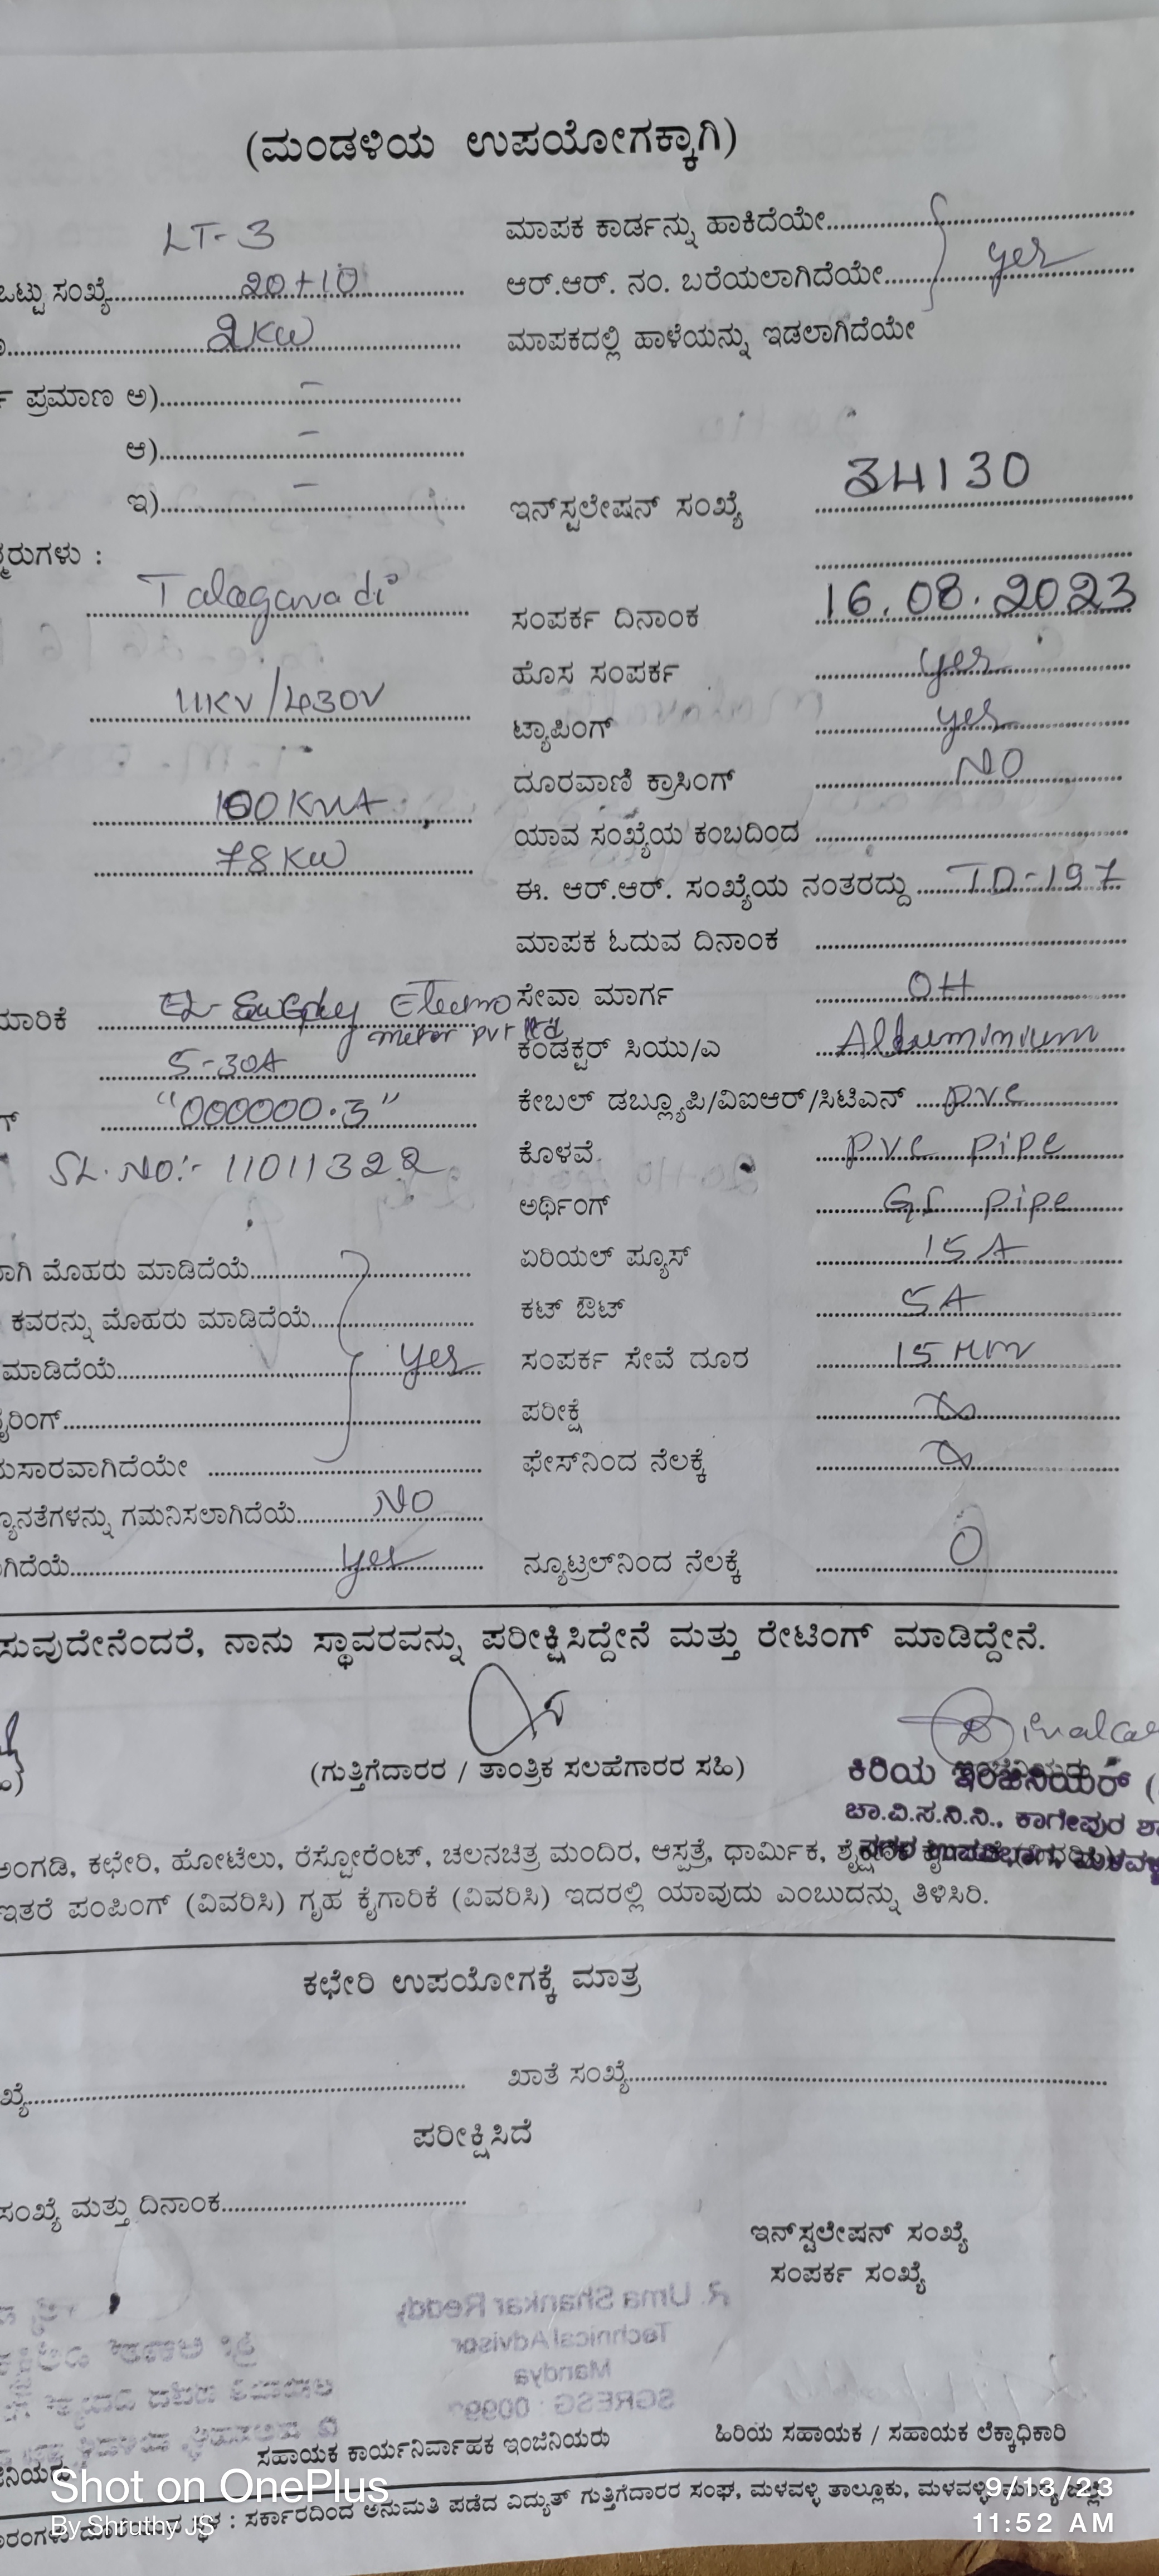 (ಮಂಡಳಿಯ ಉಪಯೋಗಕ್ಕಾಗಿ)
LT-3
ಒಟ್ಟು ಸಂಖ್ಯೆ 20+10
2KW
ಪ್ರಮಾಣ ಅ) –
ಆ) –
ಇ) –
Talagavadi
11KV/430V
100KVA
78KW
5-30A
"000000.3"
SL.NO:- 11011322
ಮೊಹರು ಮಾಡಿದೆಯೆ
ಕವರನ್ನು ಮೊಹರು ಮಾಡಿದೆಯೆ
ಮಾಡಿದೆಯೆ yes
ಗಮನಿಸಲಾಗಿದೆಯೆ NO
yes
ಮಾಪಕ ಕಾರ್ಡನ್ನು ಹಾಕಿದೆಯೇ
ಆರ್.ಆರ್. ನಂ. ಬರೆಯಲಾಗಿದೆಯೇ yes
ಮಾಪಕದಲ್ಲಿ ಹಾಳೆಯನ್ನು ಇಡಲಾಗಿದೆಯೇ
ಇನ್‌ಸ್ಟಲೇಷನ್ ಸಂಖ್ಯೆ 34130
ಸಂಪರ್ಕ ದಿನಾಂಕ 16.08.2023
ಹೊಸ ಸಂಪರ್ಕ yes
ಟ್ಯಾಪಿಂಗ್ yes
ದೂರವಾಣಿ ಕ್ರಾಸಿಂಗ್ NO
ಯಾವ ಸಂಖ್ಯೆಯ ಕಂಬದಿಂದ
ಈ. ಆರ್.ಆರ್. ಸಂಖ್ಯೆಯ ನಂತರದ್ದು TD-197
ಮಾಪಕ ಓದುವ ದಿನಾಂಕ
ಸೇವಾ ಮಾರ್ಗ OH
ಕಂಡಕ್ಟರ್ ಸಿಯು/ಎ Alluminium
ಕೇಬಲ್ ಡಬ್ಲ್ಯೂಪಿ/ವಿಐಆರ್/ಸಿಟಿಎನ್ pvc
ಕೊಳವೆ pvc pipe
ಅರ್ಥಿಂಗ್ GI pipe
ಏರಿಯಲ್ ಪ್ಯೂಸ್ 15A
ಕಟ್ ಔಟ್ 5A
ಸಂಪರ್ಕ ಸೇವೆ ದೂರ 15
ಪರೀಕ್ಷೆ
ಫೇಸ್‌ನಿಂದ ನೆಲಕ್ಕೆ
ನ್ಯೂಟ್ರಲ್‌ನಿಂದ ನೆಲಕ್ಕೆ 0
ಸುವುದೇನೆಂದರೆ, ನಾನು ಸ್ಥಾವರವನ್ನು ಪರೀಕ್ಷಿಸಿದ್ದೇನೆ ಮತ್ತು ರೇಟಿಂಗ್ ಮಾಡಿದ್ದೇನೆ.
(ಗುತ್ತಿಗೆದಾರರ / ತಾಂತ್ರಿಕ ಸಲಹೆಗಾರರ ಸಹಿ)
ಕಿರಿಯ ಇಂಜಿನಿಯರ್ (
ಚಾ.ವಿ.ಸ.ನಿ.ನಿ., ಕಾಗೇಪುರ
ಅಂಗಡಿ, ಕಛೇರಿ, ಹೋಟೆಲು, ರೆಸ್ಟೋರೆಂಟ್, ಚಲನಚಿತ್ರ ಮಂದಿರ, ಆಸ್ಪತ್ರೆ, ಧಾರ್ಮಿಕ,
ಇತರೆ ಪಂಪಿಂಗ್ (ವಿವರಿಸಿ) ಗೃಹ ಕೈಗಾರಿಕೆ (ವಿವರಿಸಿ) ಇದರಲ್ಲಿ ಯಾವುದು ಎಂಬುದನ್ನು ತಿಳಿಸಿರಿ.
ಕಛೇರಿ ಉಪಯೋಗಕ್ಕೆ ಮಾತ್ರ
ಖಾತೆ ಸಂಖ್ಯೆ
ಪರೀಕ್ಷಿಸಿದೆ
ಸಂಖ್ಯೆ ಮತ್ತು ದಿನಾಂಕ
ಇನ್‌ಸ್ಟಲೇಷನ್ ಸಂಖ್ಯೆ
ಸಂಪರ್ಕ ಸಂಖ್ಯೆ
ಸಹಾಯಕ ಕಾರ್ಯನಿರ್ವಾಹಕ ಇಂಜಿನಿಯರು
ಹಿರಿಯ ಸಹಾಯಕ / ಸಹಾಯಕ ಲೆಕ್ಕಾಧಿಕಾರಿ
ಸ್ಥಳ : ಸರ್ಕಾರದಿಂದ ಅನುಮತಿ ಪಡೆದ ವಿದ್ಯುತ್ ಗುತ್ತಿಗೆದಾರರ ಸಂಘ, ಮಳವಳ್ಳಿ ತಾಲ್ಲೂಕು, ಮಳವಳ್ಳಿ
Shot on OnePlus
By Shruthy JS
9/13/23
11:52 AM